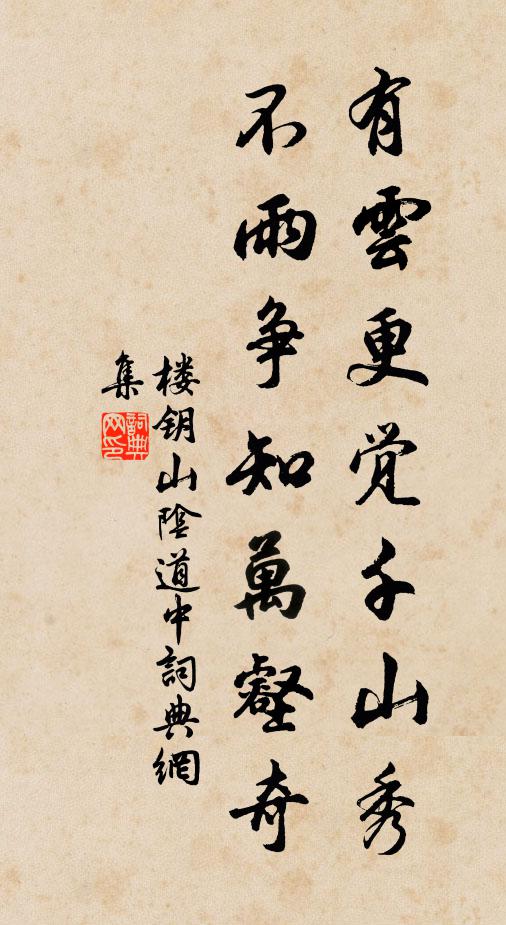 有雲更觉千山秀
不雨争知萬壑奇
楼钥山陰道中詞典網
集
詞典
网印